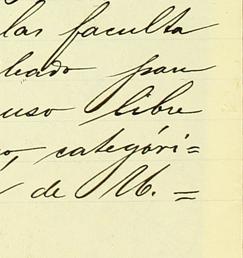 las faculta
bado para
uso libre
o, categóri=
de U. =